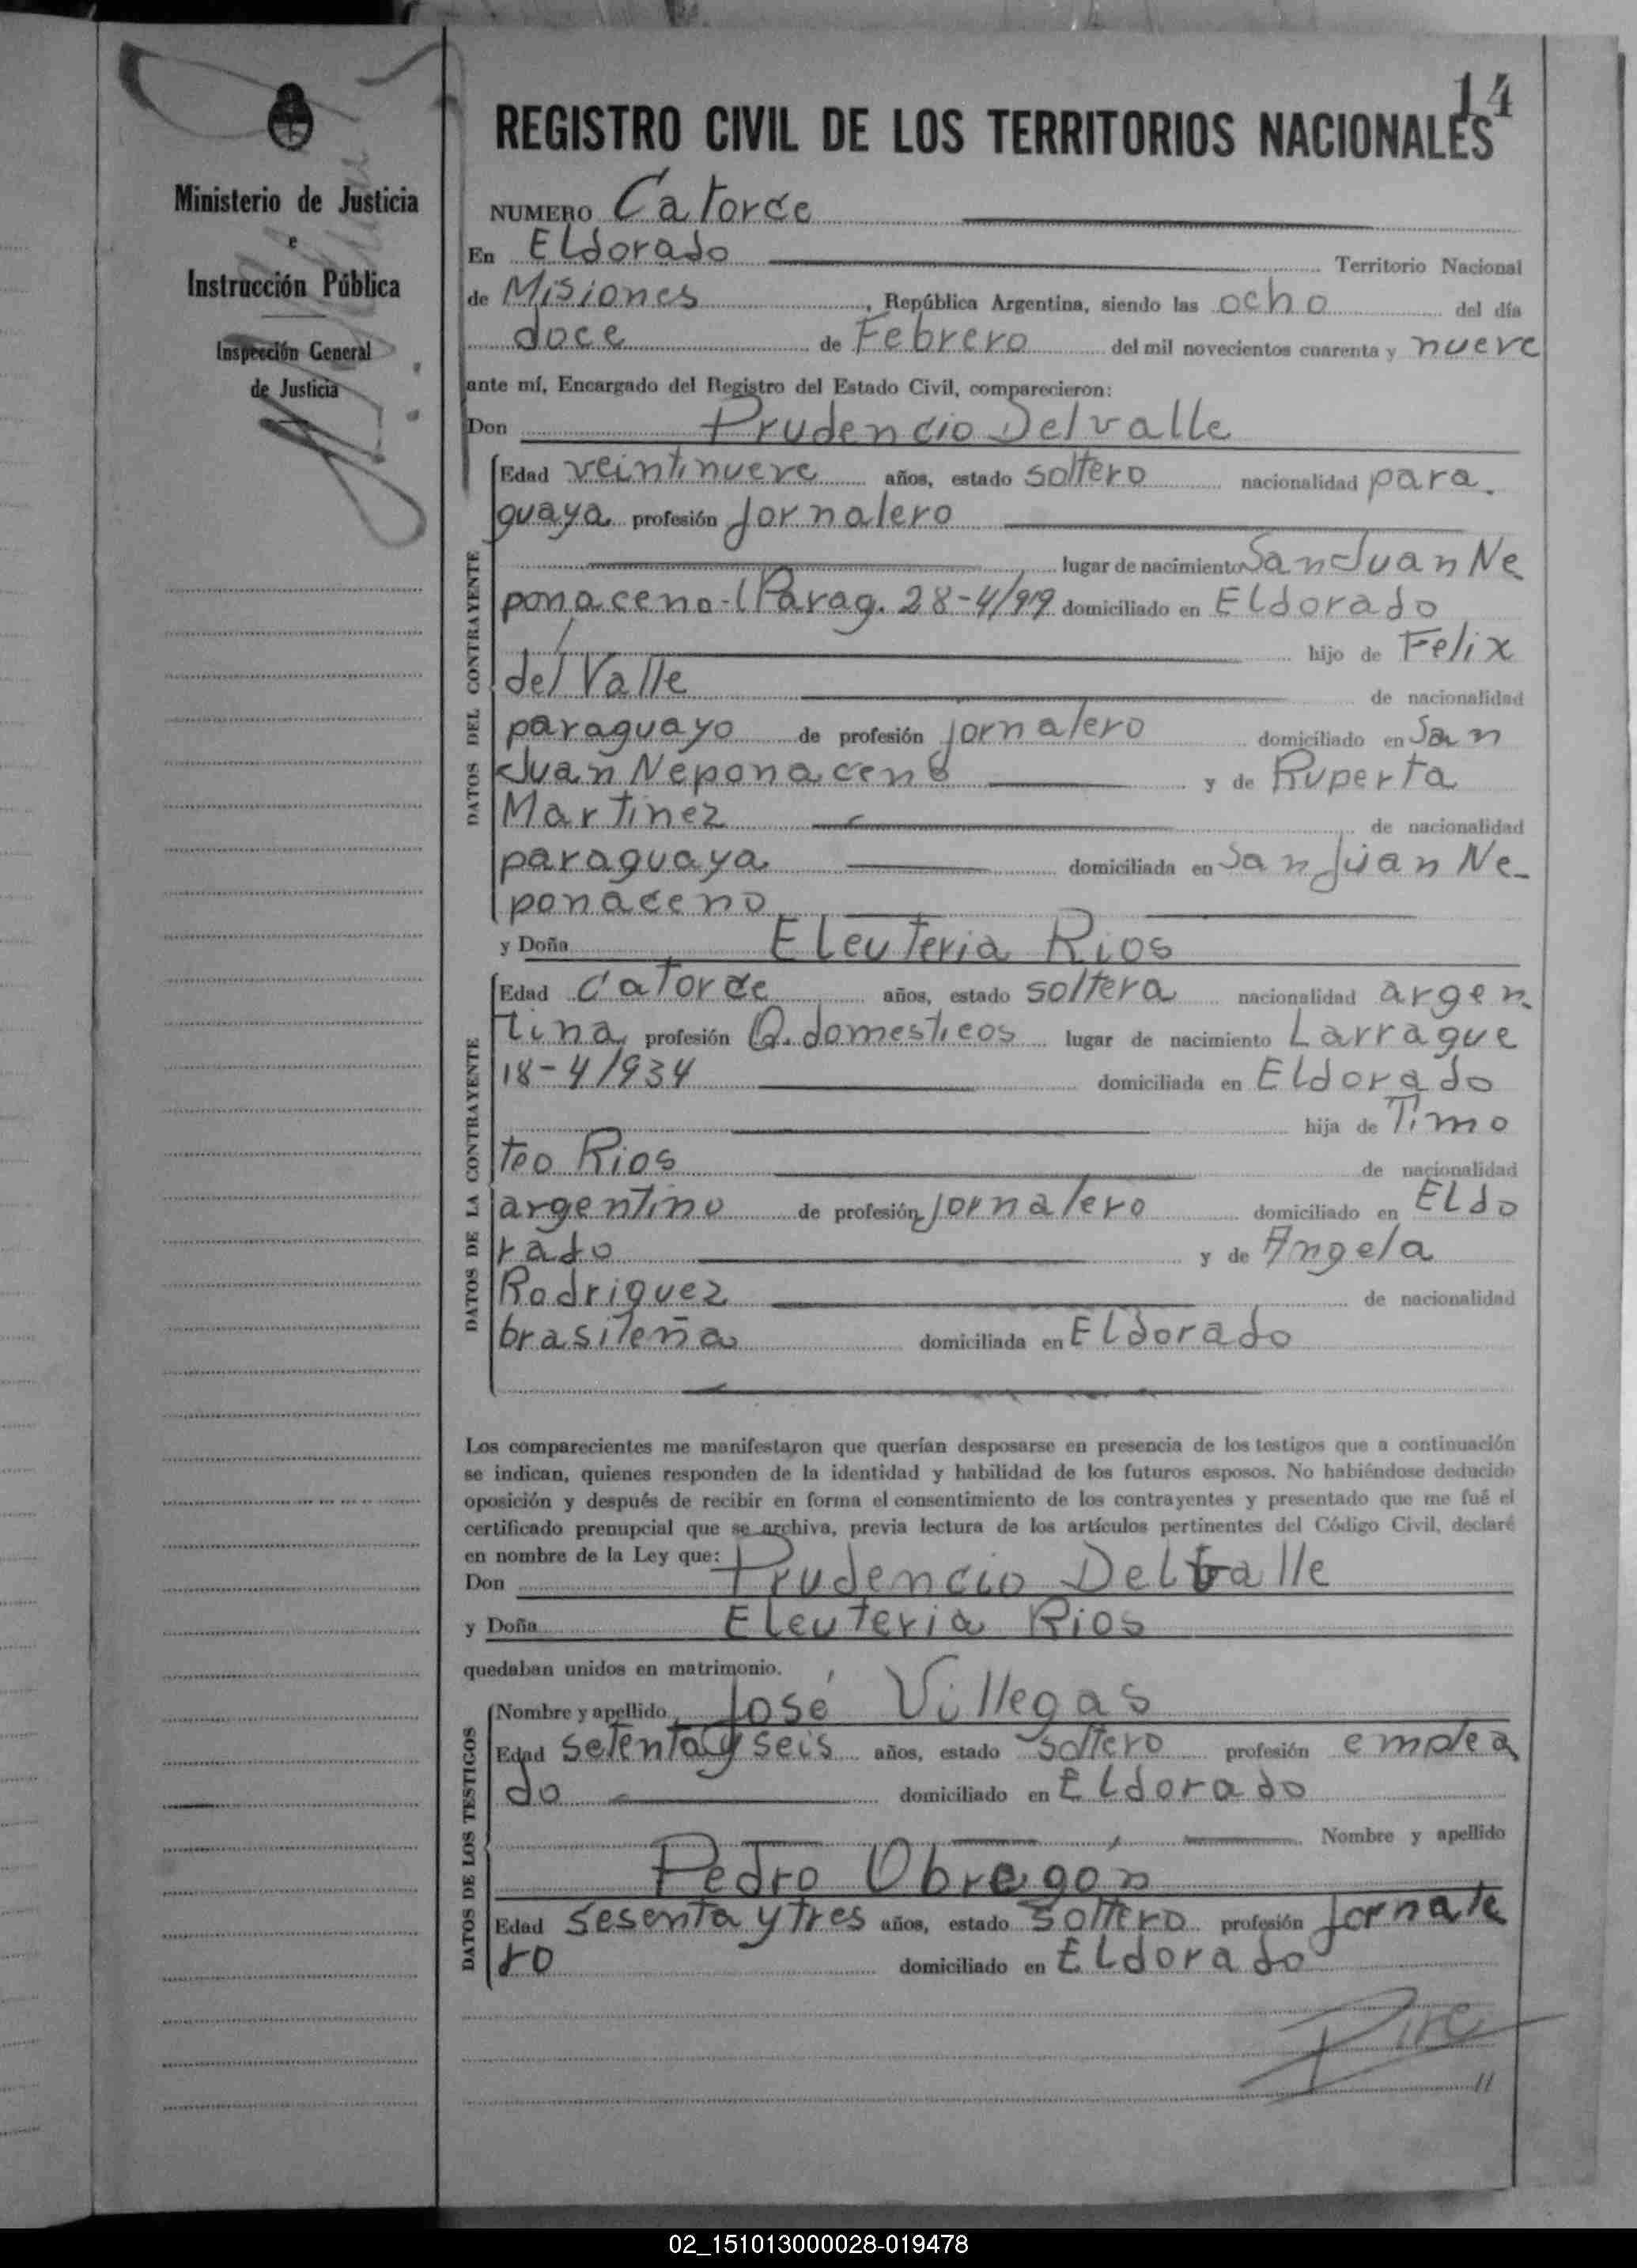 14
REGISTRO CIVIL DE LOS TERRITORIOS NACIONALES
Ministerio de Justicia
e
Instrucción Pública
Inspección General
de Justicia
NUMERO Catorce
En Eldorado Territorio Nacional
de Misiones, República Argentina, siendo las ocho del día
doce de Febrero del mil novecientos cuarenta y nueve
ante mí, Encargado del Registro del Estado Civil, comparecieron:
Don Prudencio Delvalle
DATOS DEL CONTRAYENTE
Edad veintinueve años, estado soltero nacionalidad para
guaya profesión Jornalero
lugar de nacimiento San Juan Ne
ponaceno-(Parag. 28-4/919 domiciliado en Eldorado
hijo de Felix
del Valle de nacionalidad
paraguayo de profesión jornalero domiciliado en San
Juan Neponaceno y de Ruperta
Martinez de nacionalidad
paraguaya domiciliada en San Juan Ne-
ponaceno
y Doña Eleuteria Rios
DATOS DE LA CONTRAYENTE
Edad Catorce años, estado soltera nacionalidad argen
tina profesión Q. domesticos lugar de nacimiento Larrague
18-4/934 domiciliada en Eldorado
hija de Timo
teo Rios de nacionalidad
argentino de profesión jornalero domiciliado en Eldo
rado y de Angela
Rodriguez de nacionalidad
brasileña domiciliada en Eldorado
Los comparecientes me manifestaron que querían desposarse en presencia de los testigos que a continuación
se indican, quienes responden de la identidad y habilidad de los futuros esposos. No habiéndose deducido
oposición y después de recibir en forma el consentimiento de los contrayentes y presentado que me fué el
certificado prenupcial que se archiva, previa lectura de los artículos pertinentes del Código Civil, declaré
en nombre de la Ley que:
Don Prudencio Delvalle
y Doña Eleuteria Rios
quedaban unidos en matrimonio.
DATOS DE LOS TESTIGOS
Nombre y apellido José Villegas
Edad setenta y seis años, estado soltero profesión emplea
do domiciliado en Eldorado
Nombre y apellido
Pedro Obregón
Edad sesenta y tres años, estado soltero profesión Jornale
ro domiciliado en Eldorado
//
02_151013000028-019478